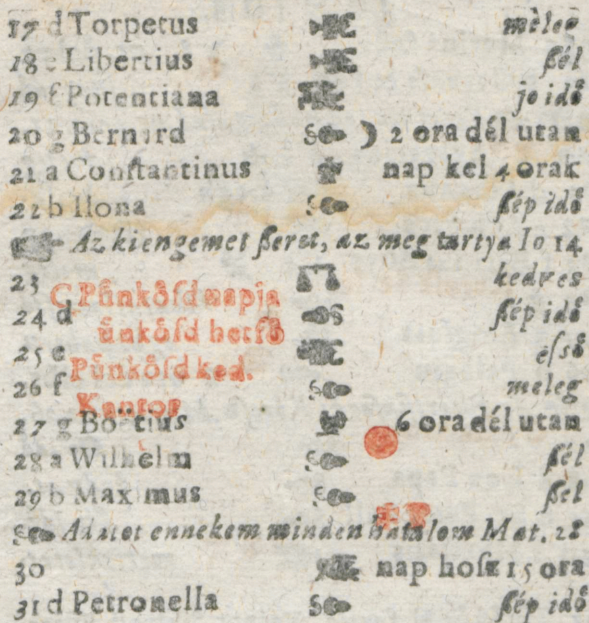 17 d Torpetus mèleg
18 e Libertius ßél
19 f Potentiana jo idő
20 g Bernard ☽ 2 ora dél utan
21 a Conſtantinus nap kel 4 orak
22 b Ilona ßép idő
Az ki engemet ßeret, az meg tartya Io 14
23 C Pünkőſd napja kedves
24 d ünkőſd hetfő ßép idő
25 e Pünkőſd ked. eſső
26 f Kantor meleg
27 g Boëtius 6 ora dél utan
28 a Wilhelm ßél
29 b Maximus ßel
Adatot ennekem minden hatalom Mat. 28
30 nap hoſz 15 ora
31 d Petronella ßép idő